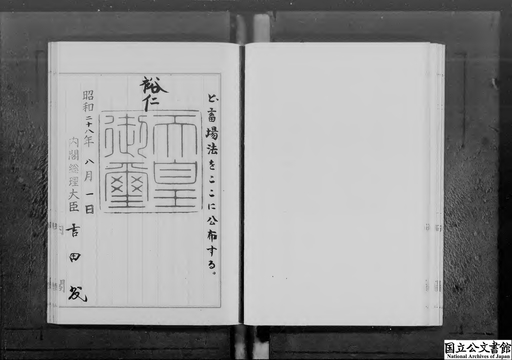 と畜場法をここに公布する。
裕仁
天皇
御璽
昭和二十八年八月一日
内閣総理大臣 吉田茂
国立公文書館
National Archives of Japan